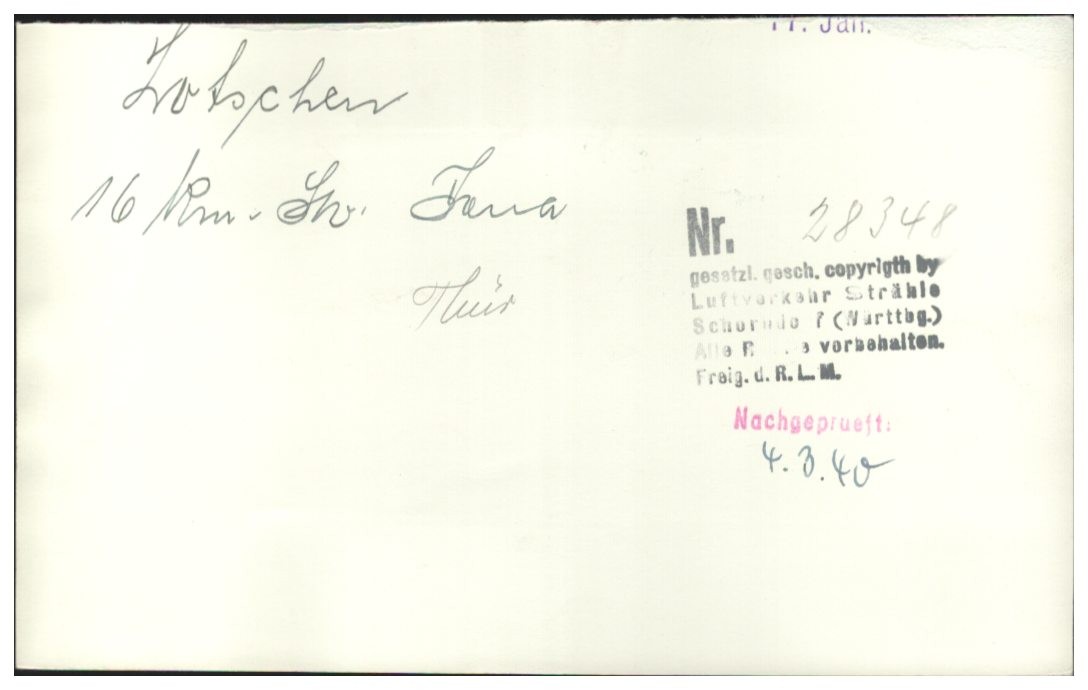 11. Jan.
Lotschen
16 km. So. Jena
Thür
Nr. 28348
gesetzl. gesch. copyrigth by
Luftverkehr Strähle
Schorndorf (Württbg.)
Alle vorbehalten.
Freig. d. R. L. M.
Nachgeprueft:
4.3.40